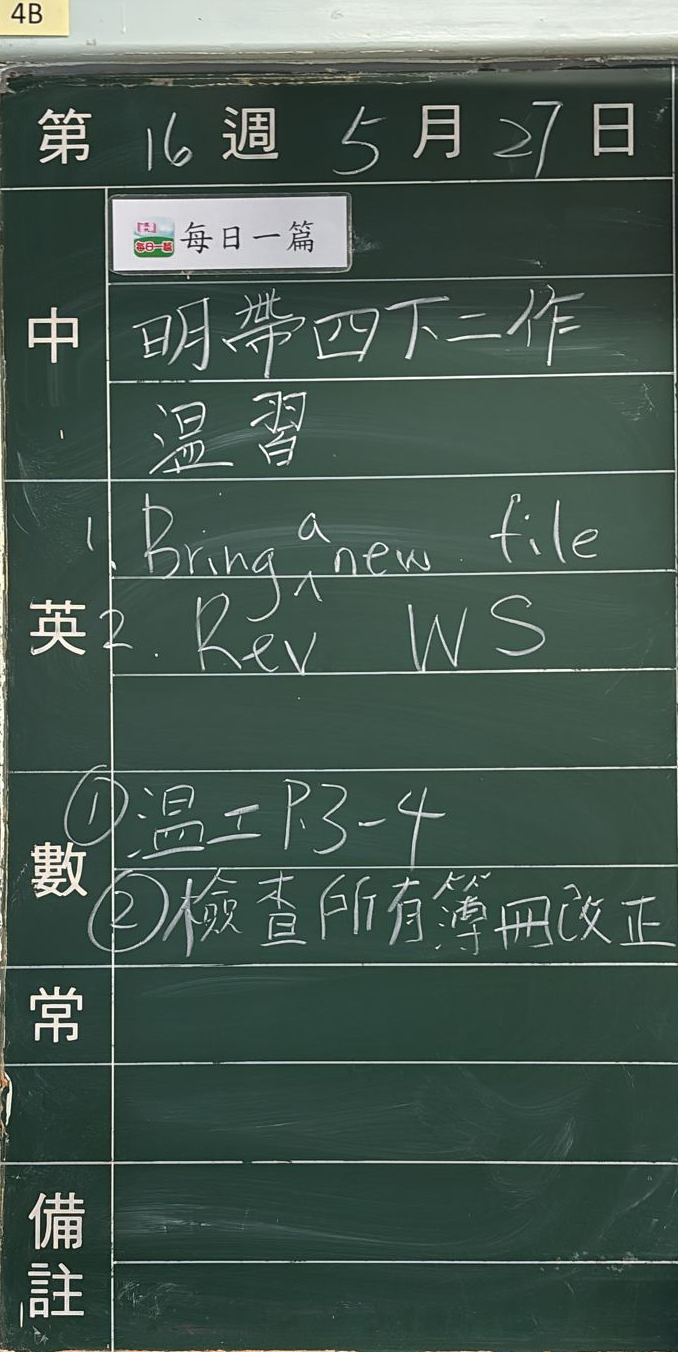 4B
第 16 週 5 月 27 日
每日一篇 每日一篇
中
明帶四下二作
温習
英
1. Bring a new file
2. Rev WS
數
① 温工 P.3-4
② 檢查所有簿冊改正
常
備註